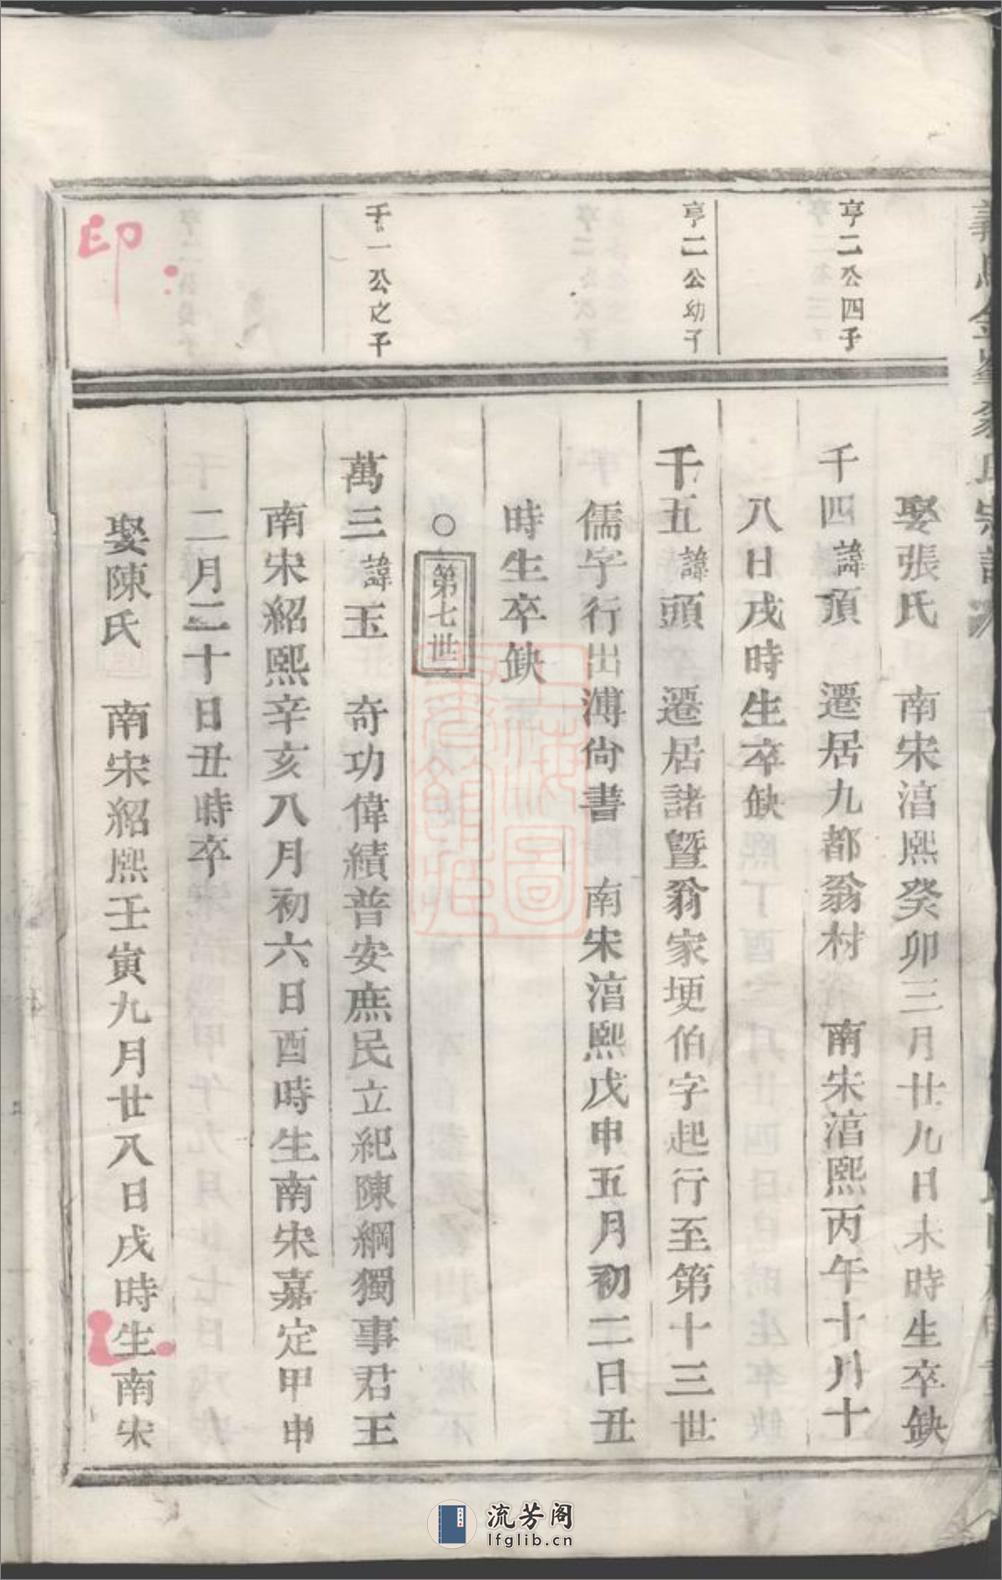 亨二公四子
亨二公幼子
千一公之子
印
娶張氏 南宋湻熙癸卯三月廿九日未時生卒缺
千四諱頂 遷居九都翁村 南宋湻熙丙午十月十
八日戌時生卒缺
千五諱頭 遷居諸暨翁家埂伯字起行至第十三世
儒字行出溥尙書 南宋湻熙戊申五月初二日丑
時生卒缺
○第七世
萬三諱玉 奇功偉績普安庶民立紀陳綱獨事君王
南宋紹熙辛亥八月初六日酉時生南宋嘉定甲申
二月二十日丑時卒
娶陳氏 南宋紹熙壬寅九月廿八日戌時生南宋
上海圖書館藏
流芳阁
lfglib.cn